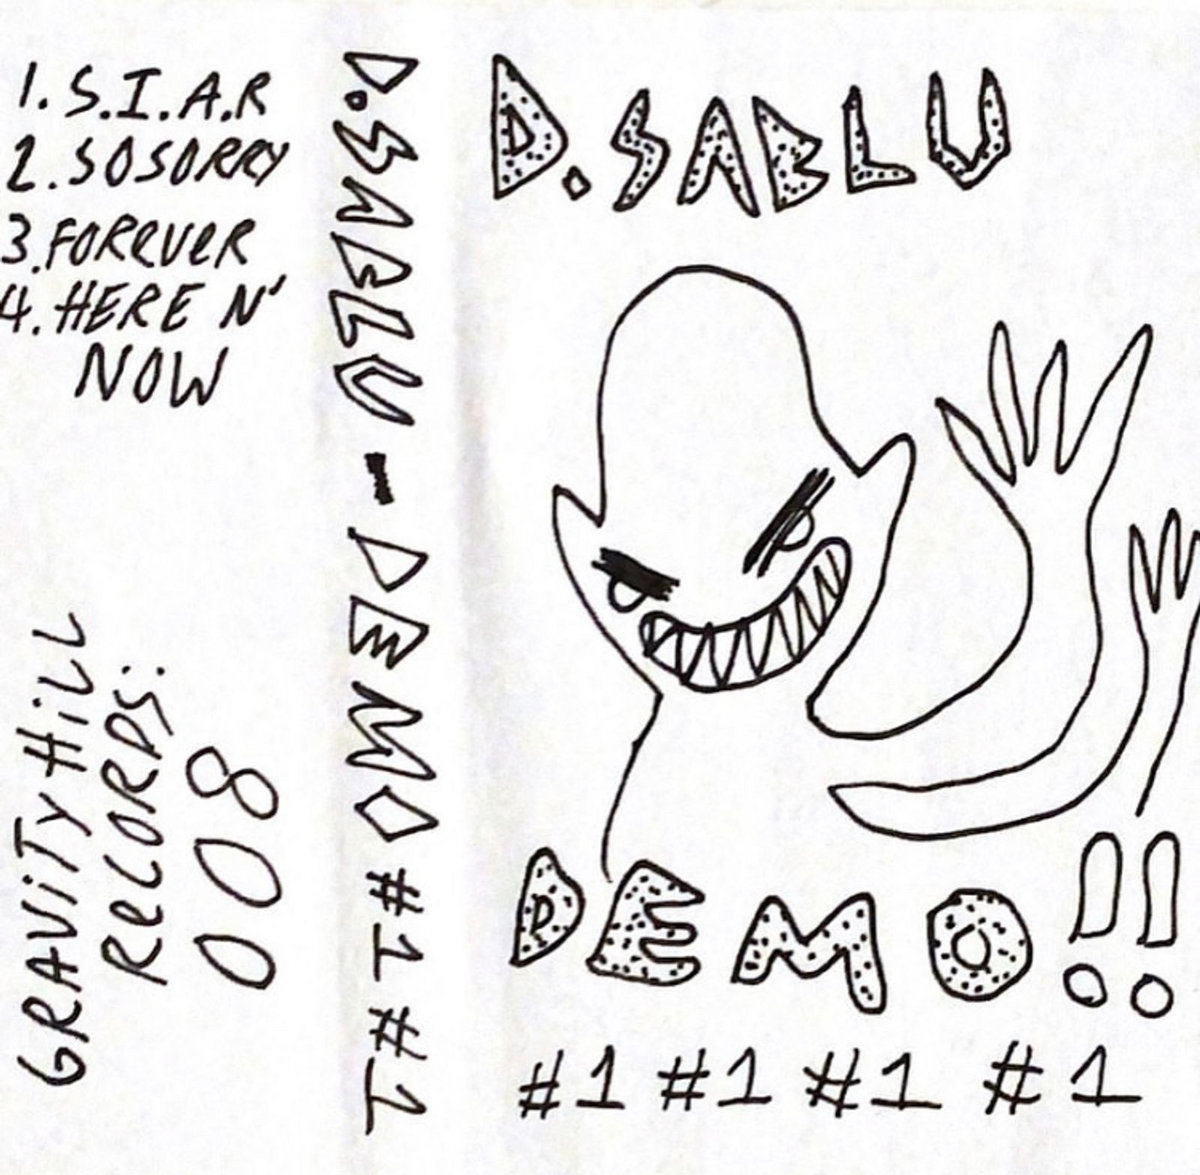 1. S.I.A.R
2. SOSORRY
3. FOREVER
4. HERE N'
NOW
GRAVITY HILL
RECORDS:
008
D.SABLU - DEMO #1#1
D.SABLU
DEMO!!
#1 #1 #1 #1